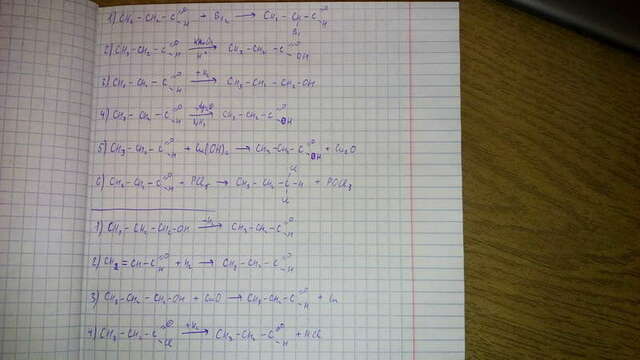 1) CH3-CH2-CH2-C=O-H + Br2 → CH3-CH-C=O-H Br
2) CH3-CH2-C=O-H KMnO4 H+ → CH3-CH2-C=O-OH
3) CH3-CH2-C=O-H +H2 → CH3-CH2-CH2-OH
4) CH3-CH2-C=O-H Ag2O NH3 → CH3-CH2-C=O-OH
5) CH3-CH2-C=O-H + Cu(OH)2 → CH3-CH2-C=O-OH + Cu2O
6) CH3-CH2-C=O-H + PCl5 → CH3-CH2-C-H Cl Cl + POCl3
1) CH3-CH2-CH2-OH -H2 → CH3-CH2-C=O-H
2) CH2=CH-C=O-H + H2 → CH3-CH2-C=O-H
3) CH3-CH2-CH2-OH + CuO → CH3-CH2-C=O-H + Cu
4) CH3-CH2-C=O-Cl +H2 → CH3-CH2-C=O-H + HCl